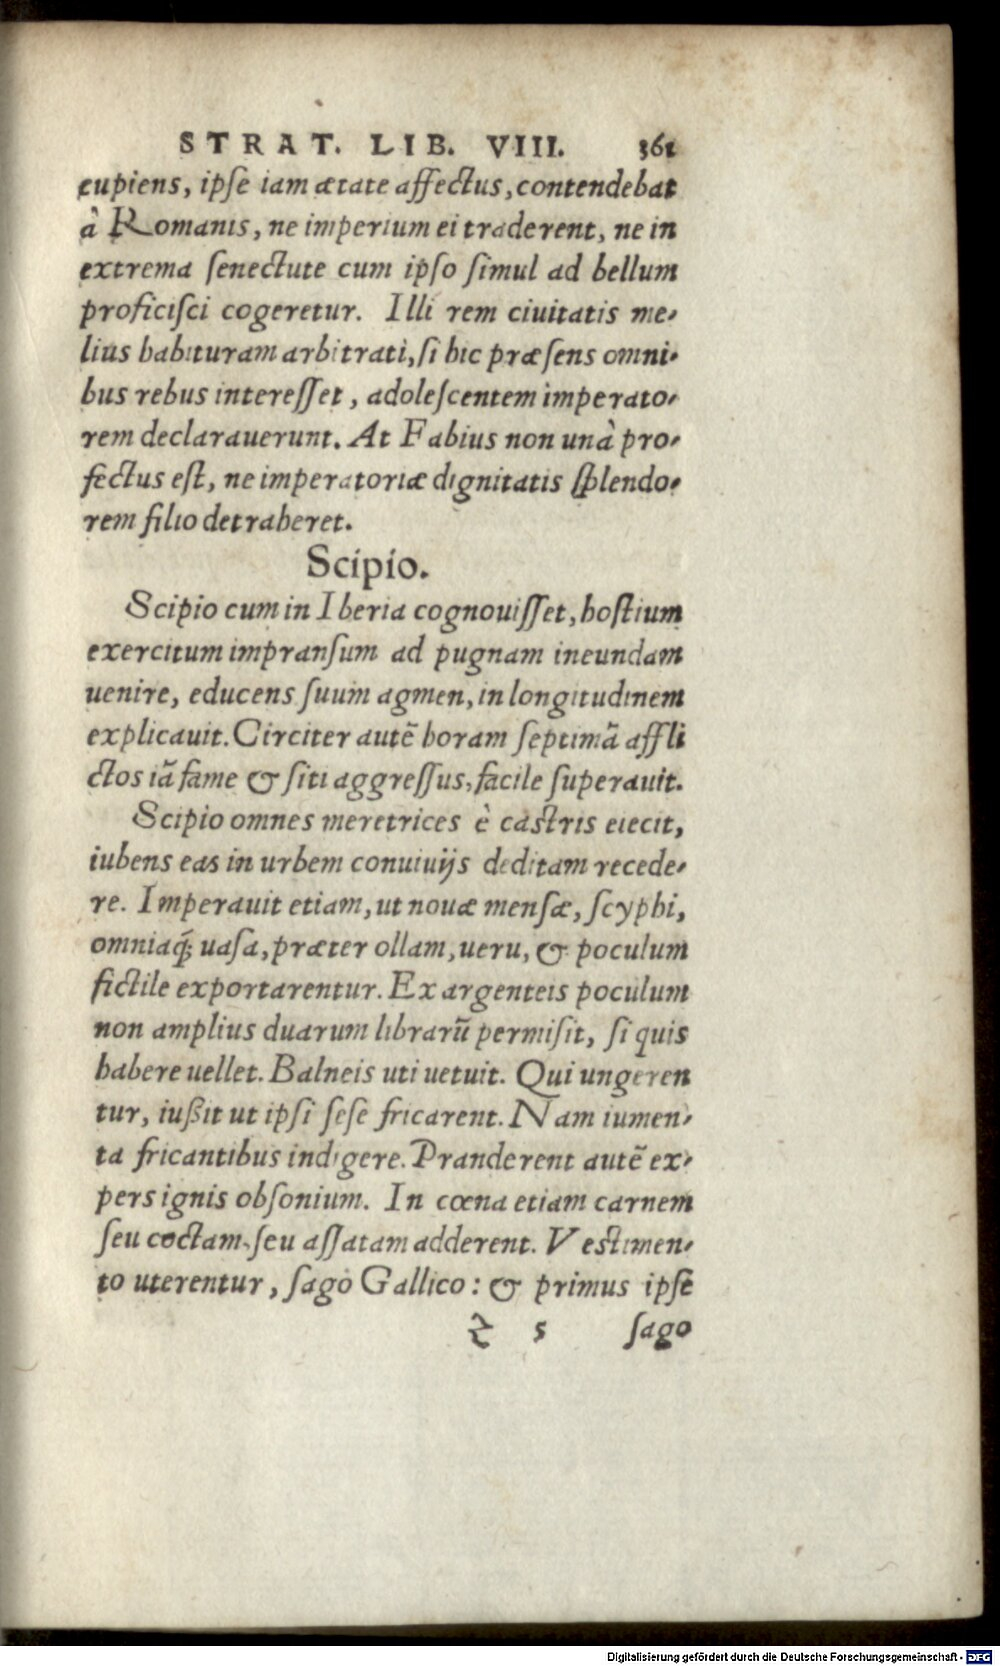 STRAT. LIB. VIII. 361
cupiens, ipſe iam ætate affectus, contendebat
à Romanis, ne imperium ei traderent, ne in
extrema ſenectute cum ipſo ſimul ad bellum
proficiſci cogeretur. Illi rem ciuitatis me-
lius habituram arbitrati, ſi hic præſens omni-
bus rebus intereſſet, adoleſcentem imperato-
rem declarauerunt. At Fabius non unà pro-
fectus eſt, ne imperatoriæ dignitatis ſplendo-
rem filio detraheret.
Scipio.
Scipio cum in Iberia cognouiſſet, hoſtium
exercitum impranſum ad pugnam ineundam
uenire, educens ſuum agmen, in longitudinem
explicauit. Circiter autẽ horam ſeptimã affli
ctos iã fame & ſiti aggreſſus, facile ſuperauit.
Scipio omnes meretrices è caſtris eiecit,
iubens eas in urbem conuiuijs deditam recede-
re. Imperauit etiam, ut nouæ menſæ, ſcyphi,
omniaq́; uaſa, præter ollam, ueru, & poculum
fictile exportarentur. Ex argenteis poculum
non amplius duarum librarũ permiſit, ſi quis
habere uellet. Balneis uti uetuit. Qui ungeren
tur, iußit ut ipſi ſeſe fricarent. Nam iumen-
ta fricantibus indigere. Pranderent autẽ ex-
pers ignis obſonium. In cœna etiam carnem
ſeu coctam, ſeu aſſatam adderent. Veſtimen-
to uterentur, ſago Gallico: & primus ipſe
Z 5 ſago
Digitalisierung gefördert durch die Deutsche Forschungsgemeinschaft - DFG